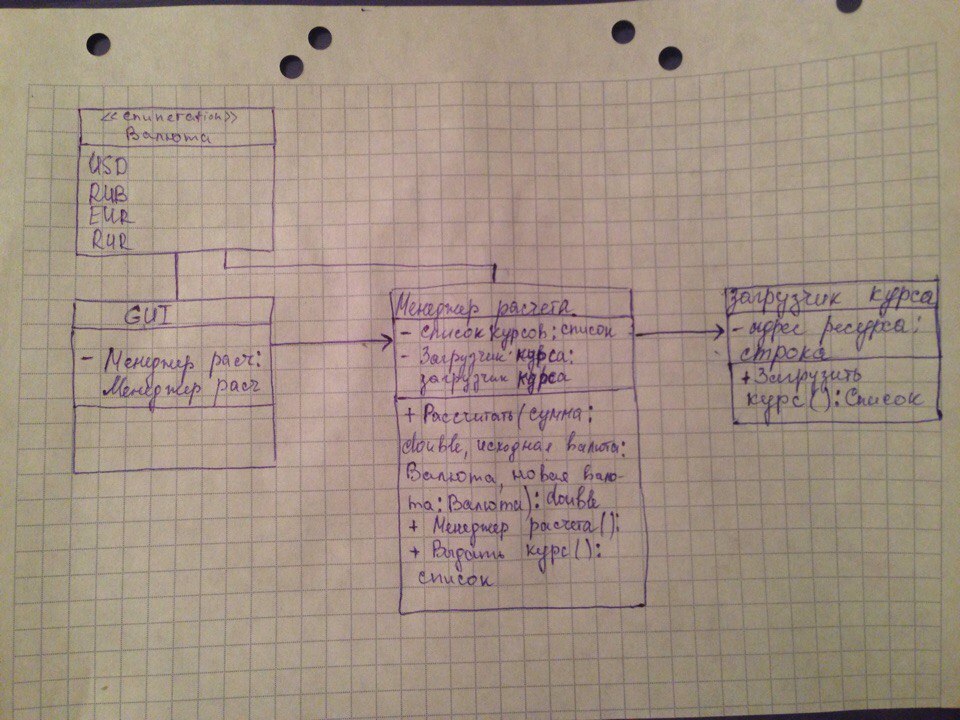 <<enumeration>>
Валюта
USD
RUB
EUR
RUR
GUI
- Менеджер расч:
Менеджер расч
Менеджер расчета
- Список курсов: список
- Загрузчик курса:
загрузчик курса
+ Рассчитать(сумма:
double, исходная валюта:
Валюта, новая валю-
та: Валюта): double
+ Менеджер расчета():
+ Выдать курс():
список
Загрузчик курса
- адрес ресурса:
строка
+ Загрузить
курс(): Список